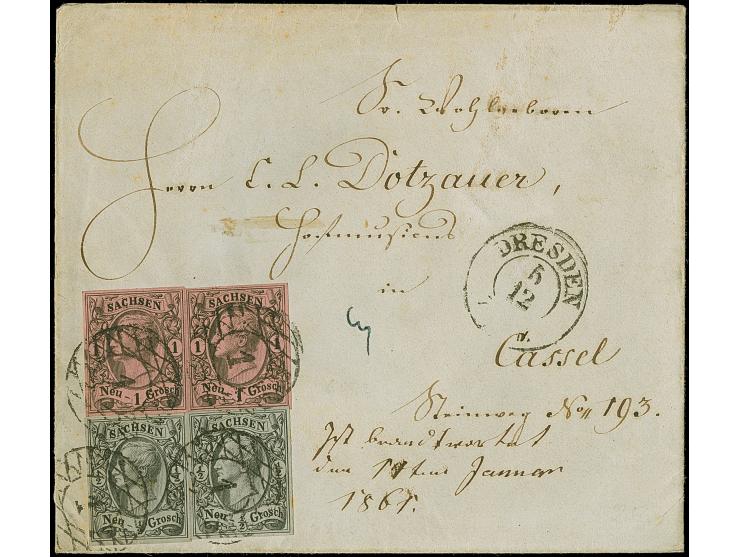 Sr. Wohlgeboren
Herrn C. L. Dotzauer,
Hofmusicus
in
DRESDEN
5
12
Cassel
Steinweg No 193.
Ist beantwortet
den 11ten Januar
1861.
SACHSEN
1 1
Neu-1 Grosch
SACHSEN
1 1
Neu-1 Grosch
SACHSEN
½ ½
Neu-½ Grosch
SACHSEN
½ ½
Neu-½ Grosch